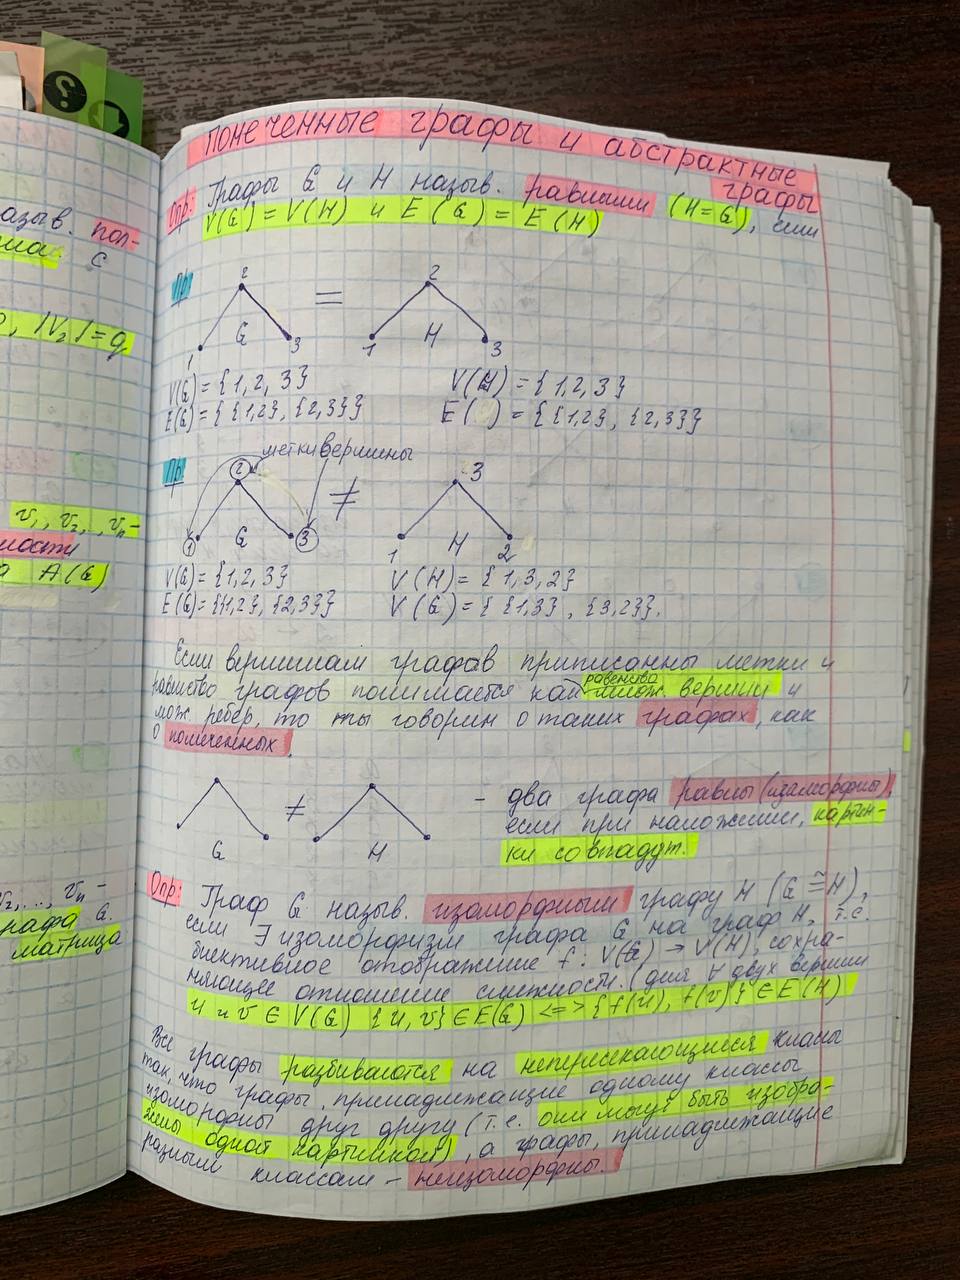 азыв. пол-
с
, |V₂|=q
v₁, v₂, .., vₙ-
А(G)
v₂, ..., vₙ -
графа G.
матрица
Помеченные графы и абстрактные
графы
Опр: Графы G и H назыв. равными (H=G), если
V(G) = V(H) и E(G) = E(H)
Пр:
2 = 2
1 G 3 1 H 3
V(G) = {1, 2, 3} V(H) = {1,2,3}
E(G) = { {1,2}, {2,3}} E( ) = { {1,2}, {2,3}}
метки вершины
Пр:
2 ≠ 3
1 G 3 1 H 2
V(G) = {1,2,3} V(H) = {1,3,2}
E(G) = {{1,2}, {2,3}} V(G) = { {1,3}, {3,2}}.
Если вершинам графов приписанны метки и
равенства
равенство графов понимается как множ. вершин и
мож. ребер, то мы говорим о таких графах, как
о помеченных.
≠
G H
- два графа равны (изоморфны),
если при наложении, картин-
ки совпадут.
Опр: Граф G назыв. изоморфным графу H (G ≅ H),
если ∃ изоморфизм графа G на граф H, т.е.
биективное отображение f: V(G) → V(H), сохра-
няющее отношение смежности. (для ∀ двух вершин
u и v ∈ V(G) {u, v} ∈ E(G) <=> {f(u), f(v)} ∈ E(H)
Все графы разбиваются на непересекающиеся классы
так, что графы, принадлежащие одному классу,
изоморфны друг другу (т.е. они могут быть изобра-
жены одной картинкой), а графы, принадлежащие
разным классам - неизоморфны.